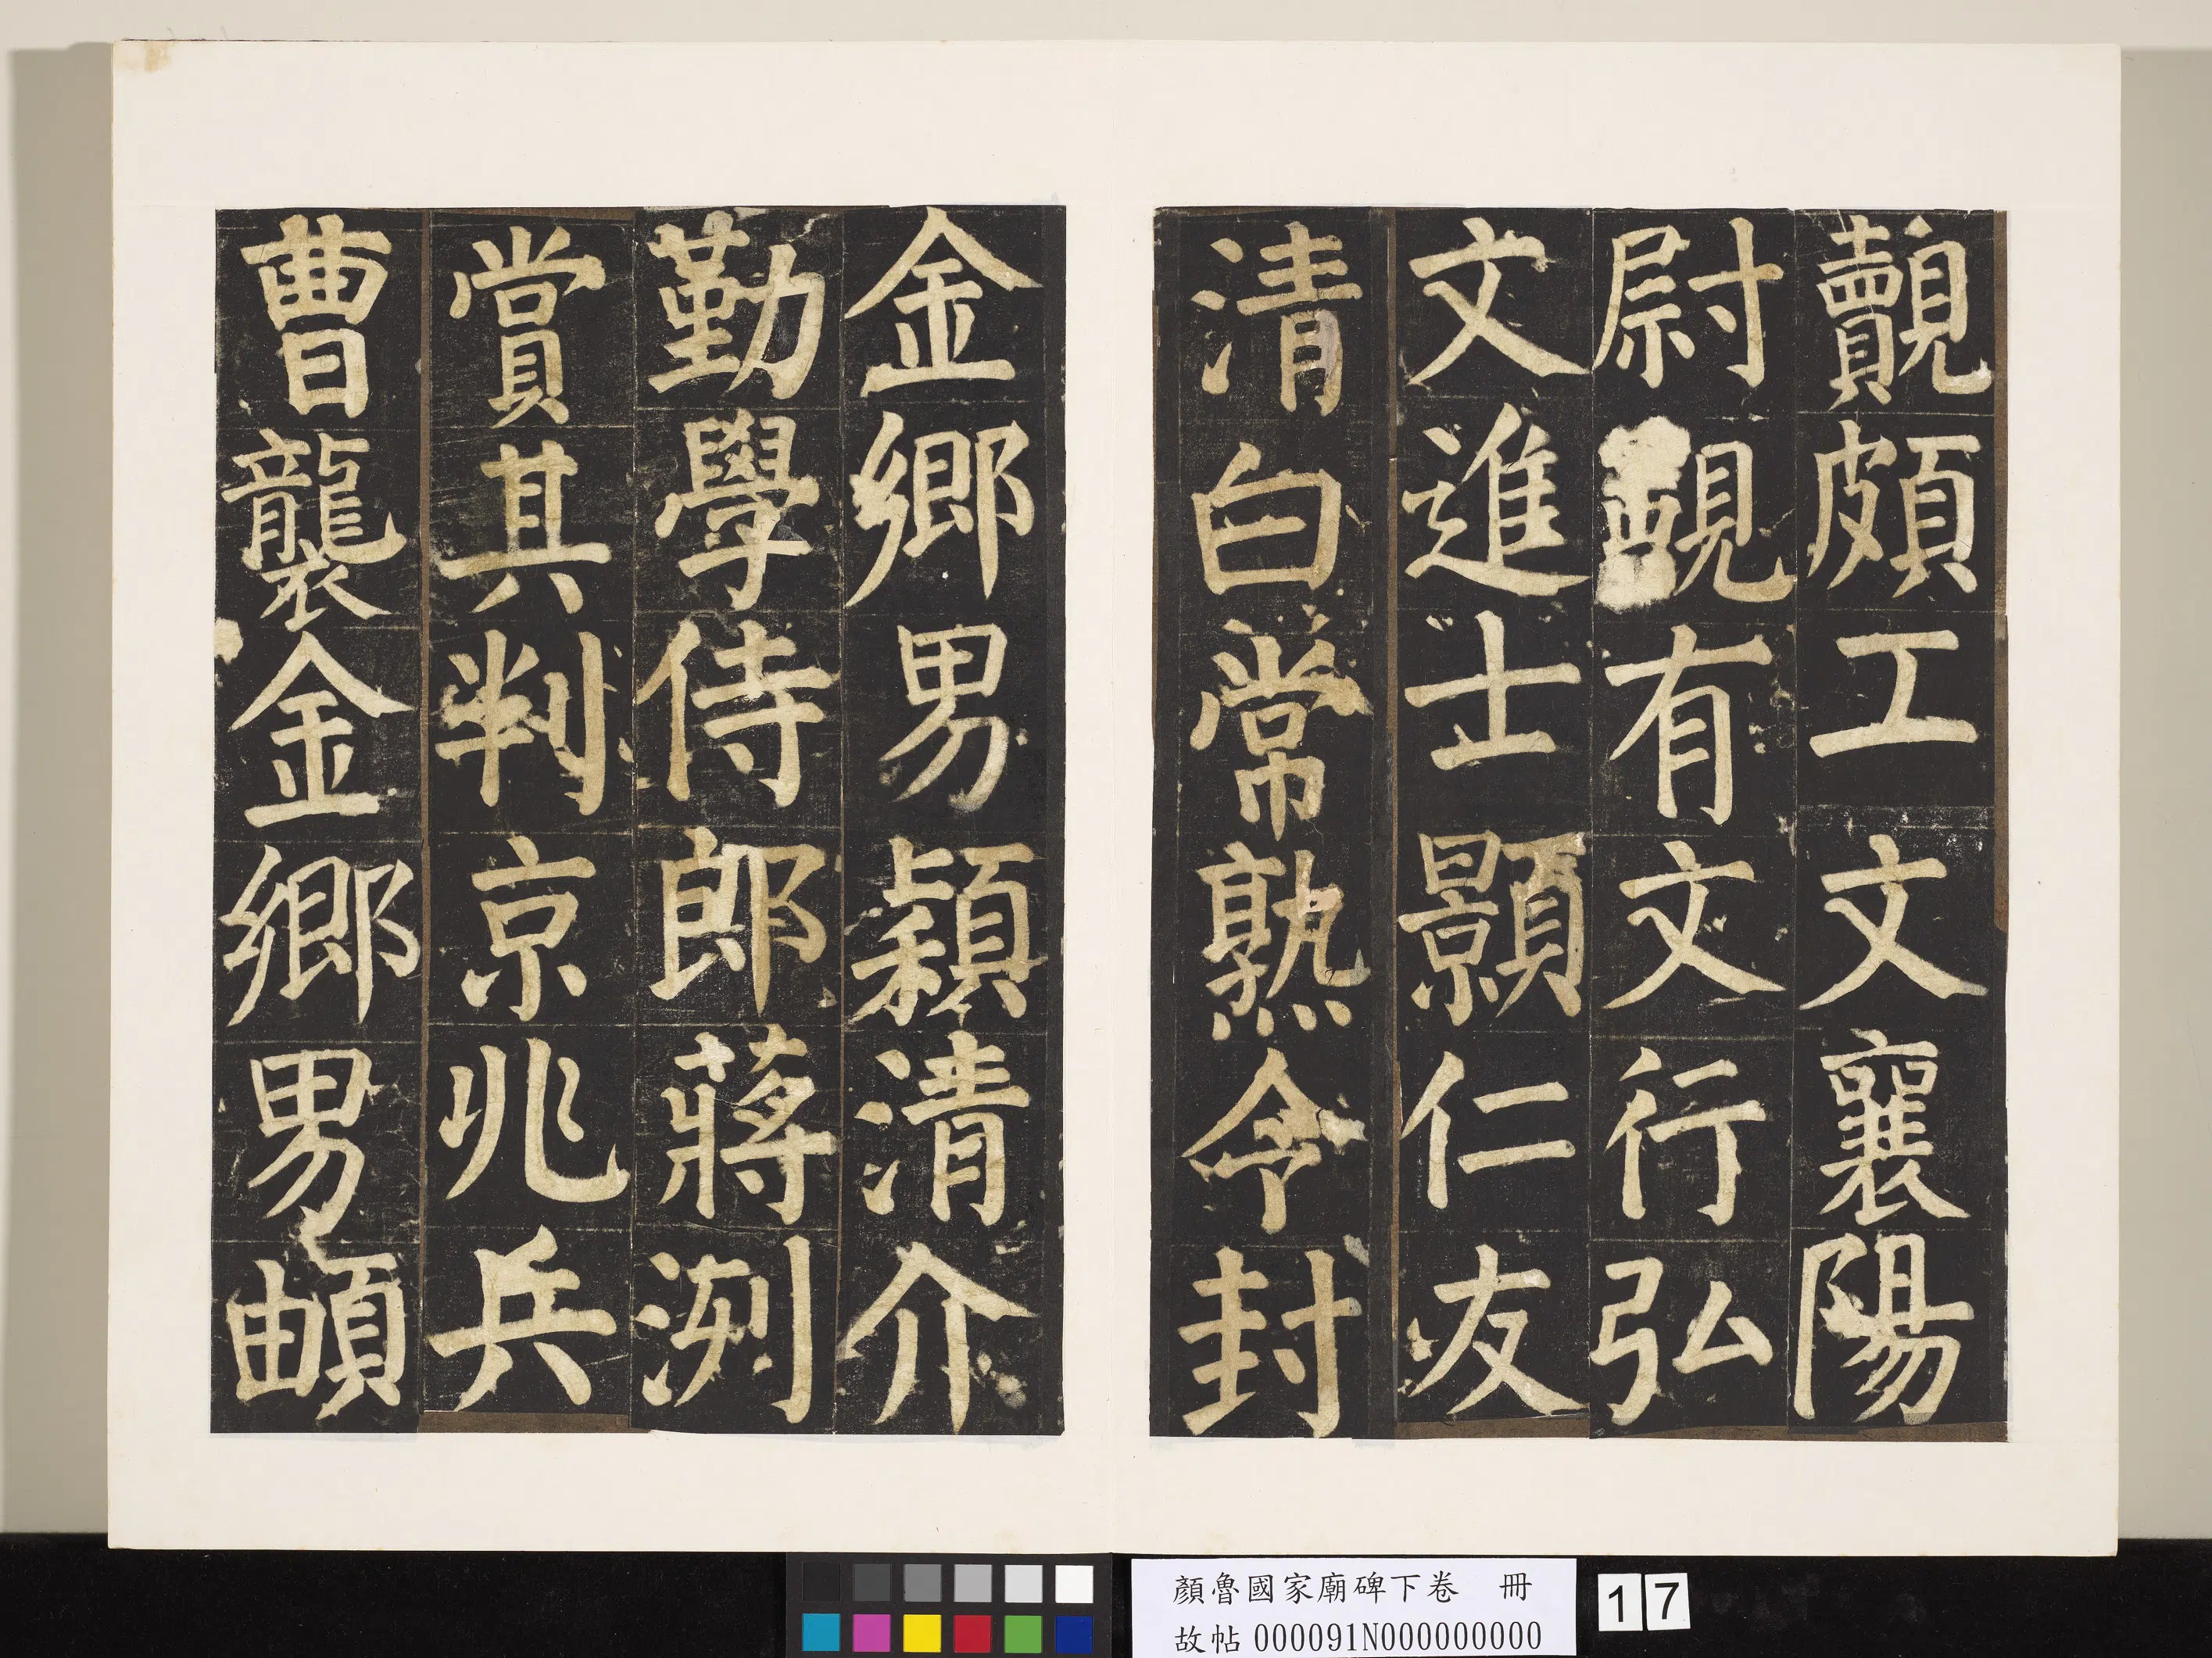 覿頗工文襄陽
尉有文行弘
文進士顥仁友
清白常熟令封
金鄉男穎清介
勤學侍郎蔣洌
賞其判京兆兵
曹襲金鄉男頔
顏魯國家廟碑下卷 冊
故帖000091N000000000
17